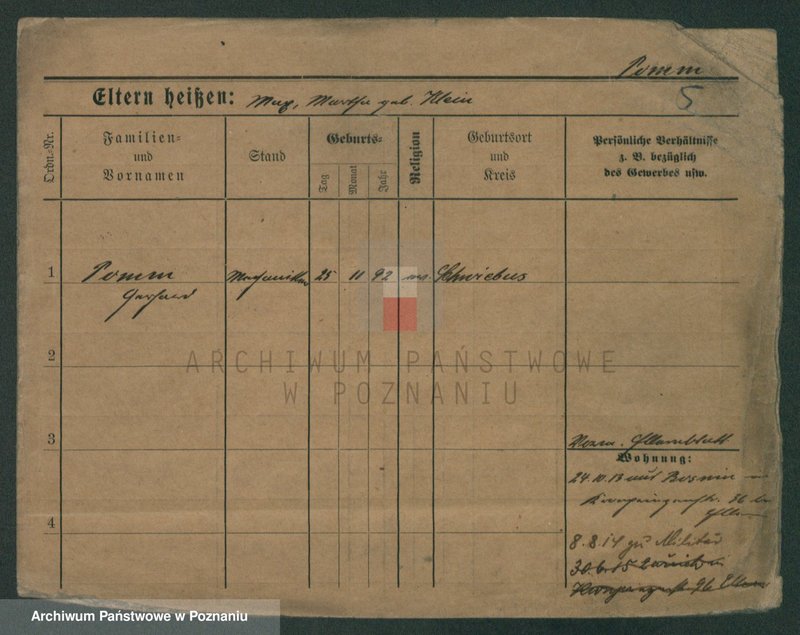 Pomm
5
Eltern heißen: Max, Martha geb. Klein
Ordn.-Nr.
Familien-
und
Vornamen
Stand
Geburts-
Tag
Monat
Jahr
Religion
Geburtsort
und
Kreis
Persönliche Verhältnisse
z. B. bezüglich
des Gewerbes usw.
1 Pomm Mechaniker 25 11 92 Schwiebus
Gerhard
ARCHIWUM PAŃSTWOWE
W POZNANIU
2
3
Elternblatt
Wohnung:
24.10.13 aus
Kronprinzenstr. 96 bei
Eltern
4
8.8.14 zu Militär
30.6.15 zurück
Kronprinzenstr. 96 Eltern
Archiwum Państwowe w Poznaniu